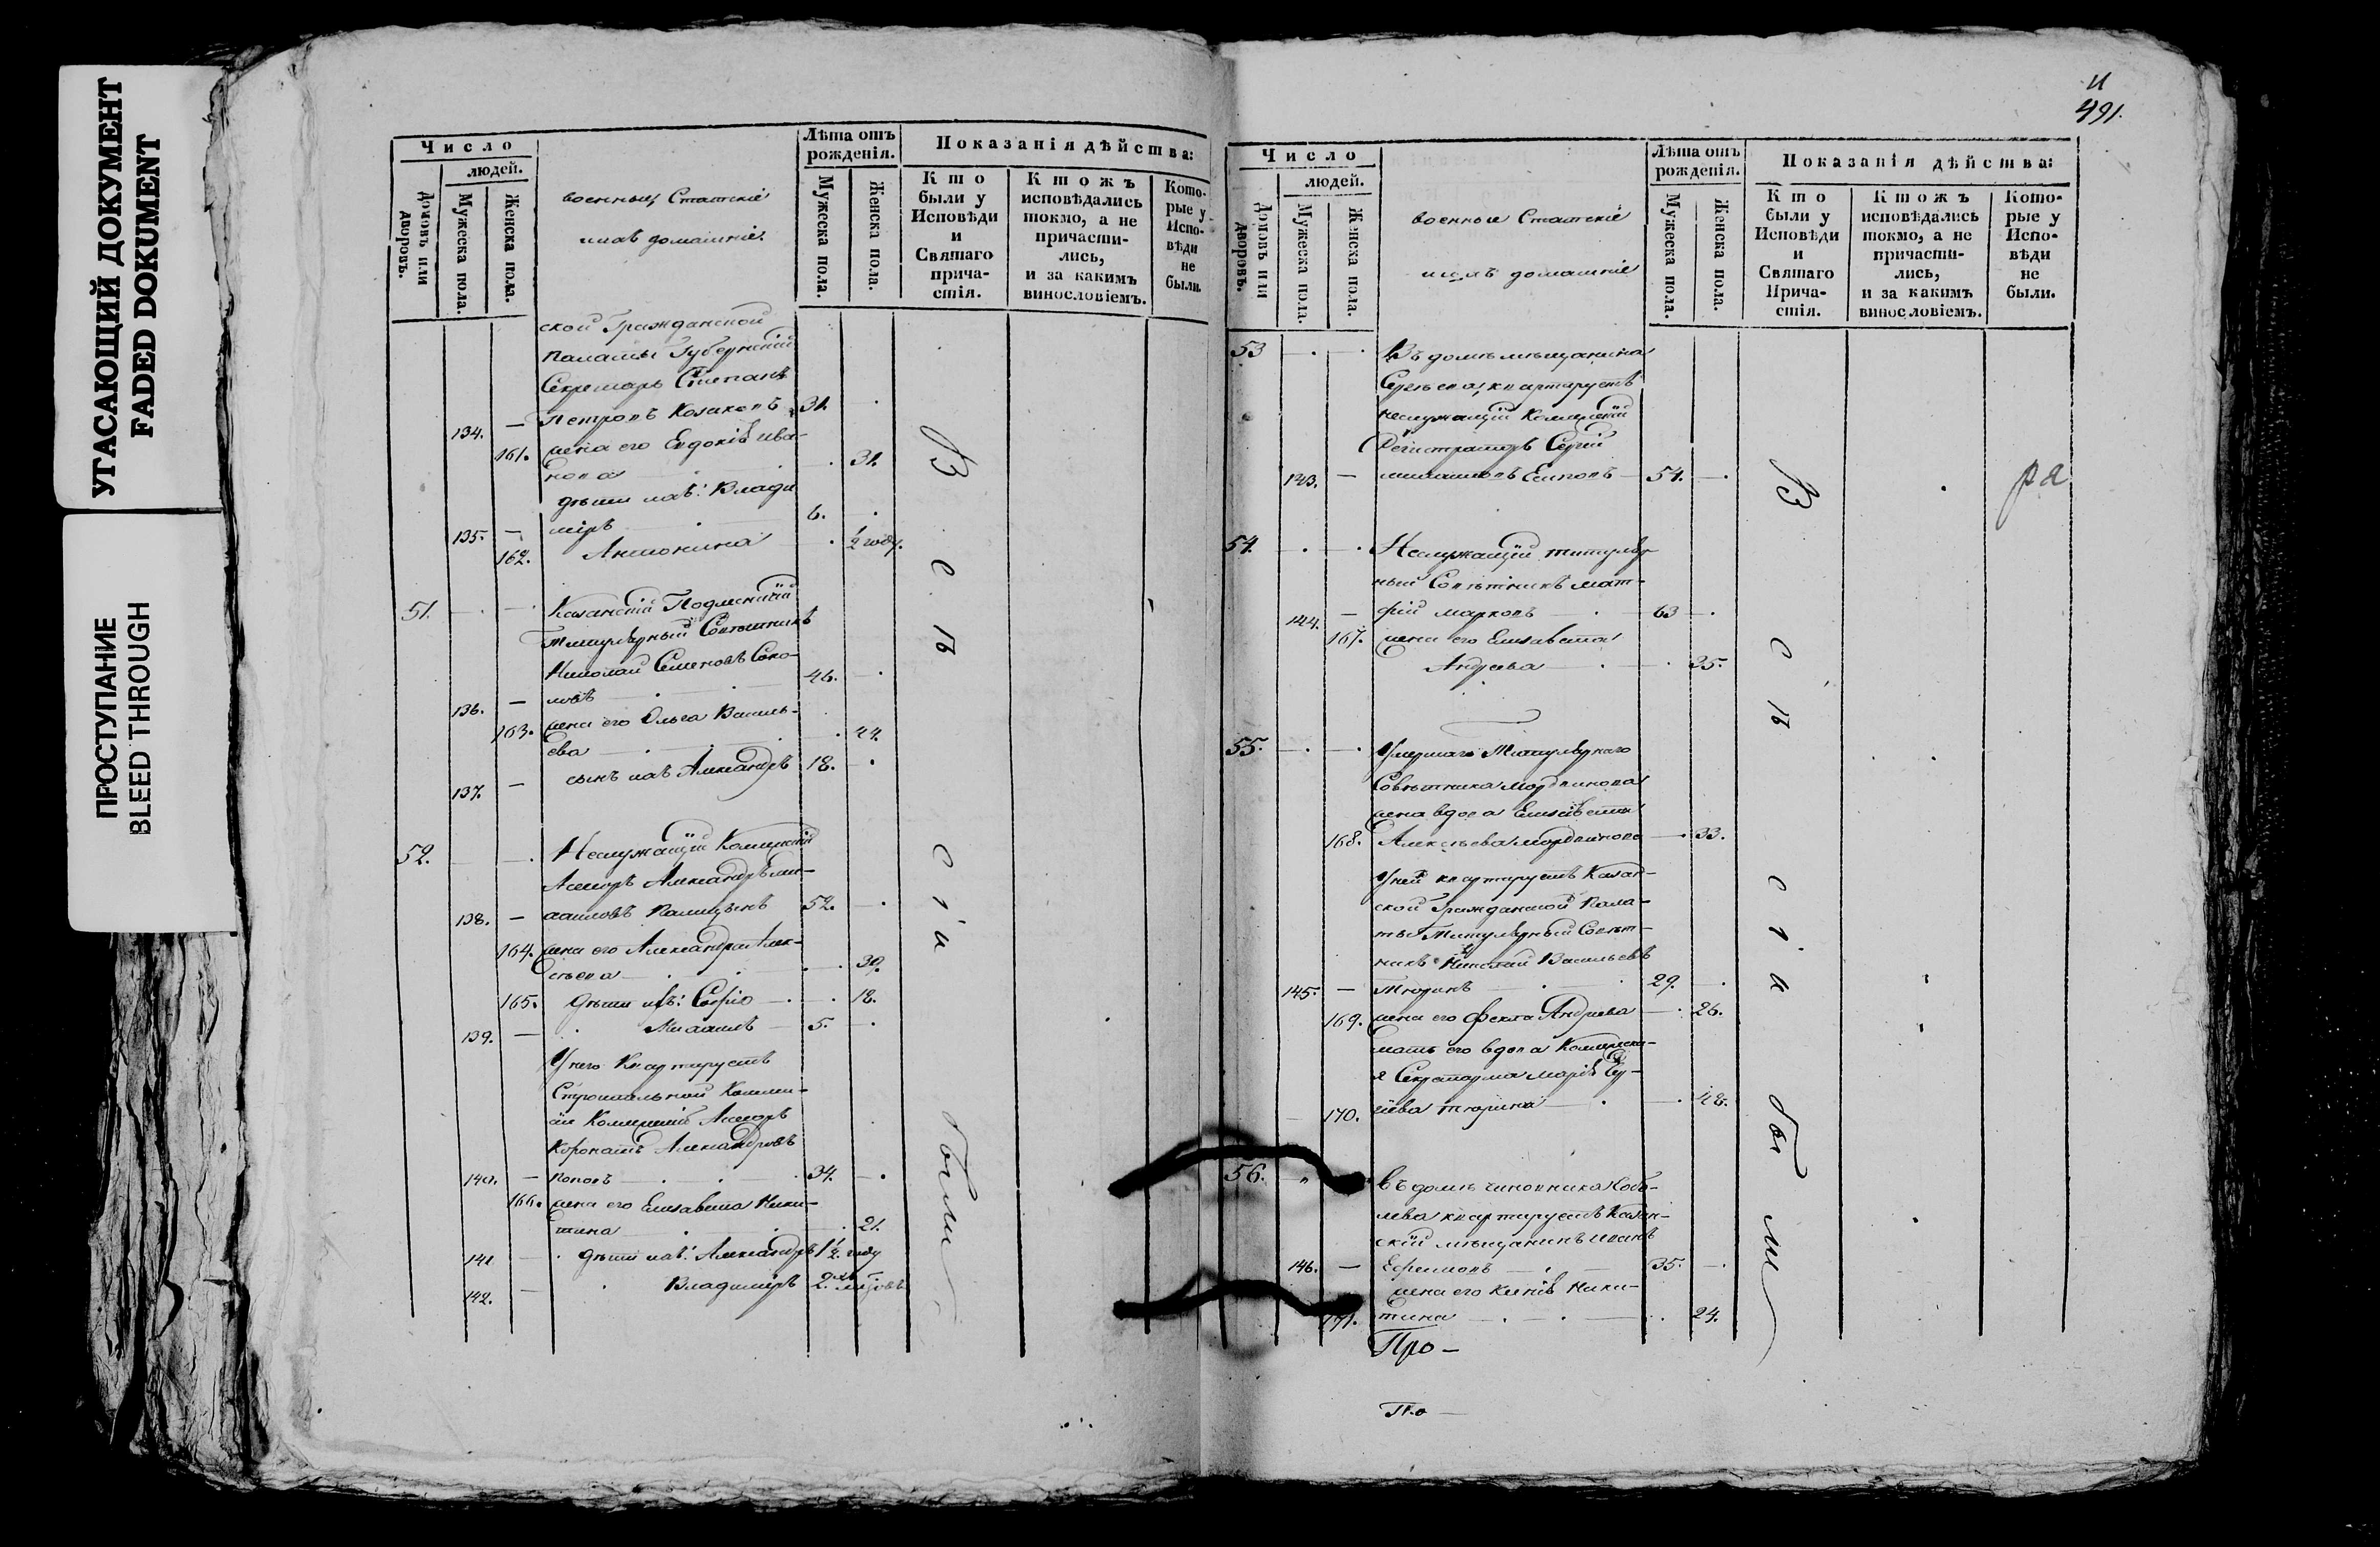 УГАСАЮЩИЙ ДОКУМЕНТ
FADED DOKUMENT
ПРОСТУПАНИЕ
BLEED THROUGH
Число
людей.
Домовъ или дворовъ.
Мужеска пола.
Женска пола.
военныя Статскіе
ихъ домашніе.
Лѣта отъ рожденія.
Мужеска пола.
Женска пола.
Показанія дѣйства:
Кто были у Исповѣди и Святаго причастія.
Ктожъ исповѣдались токмо, а не причастились, и за какимъ винословіемъ.
Которые у Исповѣди не были.
ской Гражданской
Палаты Губернскій
Секретарь Степанъ
134. — Петровъ Козаковъ 31.
161. жена его Евдокія Ива-
нова 31.
дѣти ихъ: Влади
135. — міръ 6.
162. Антонина ½ году.
51. Казанскій
Титулярный Совѣтникъ
Николай Семеновъ Соко-
136. — ловъ 46.
163. жена его Ольга Василь-
ева 44.
137. — сынъ ихъ Александръ 18.
52. Неслужащій Коллежскій
Асесоръ Александръ Ми-
138. — хаиловъ 52.
164. жена его Александра Алек-
сѣева 39.
165. дѣти ихъ: Софія 18.
139. — Михаилъ 5.
У него Квартируетъ
Строительной Комми-
сіи Коллежскій Асесоръ
Александровъ
140. — Поповъ 34.
166. жена его Елизавета Ники-
тина 21.
141 — дѣти ихъ: Александръ 1½ году
142. — Владиміръ 2.
В с ѣ с і и были
и
491.
Число
людей.
Домовъ или дворовъ.
Мужеска пола.
Женска пола.
военные Статскіе
ихъ домашніе
Лѣта отъ рожденія.
Мужеска пола.
Женска пола.
Показанія дѣйства:
Кто были у Исповѣди и Святаго Причастія.
Ктожъ исповѣдались токмо, а не причастились, и за какимъ винословіемъ.
Которые у Исповѣди не были.
53 Въ домѣ мѣщанина
квартируетъ
неслужащій Коллежскій
Регистраторъ Сергій
143. — 54.
54. Неслужащій титуляр
ный Совѣтникъ Мат-
144. — фій Марковъ 63
167. жена его Елизавета
Андреева 35.
55. Умершаго Титулярнаго
Совѣтника Мордвинова
жена вдова Елизавета
168. Алексѣева Мордвинова 33.
У ней квартируетъ Казан-
ской Гражданской Пала-
ты Титулярный Совѣт-
никъ Николай Васильевъ
145. — Тюринъ 29.
169. жена его Фекла Андреева 26.
мать его вдова Коллежска-
я Секретарша Марія
170. Тюрина 48.
56. Въ домѣ чиновника Кобе-
лева квартируетъ Казан-
скій мѣщанинъ Иванъ
146. — Ефимовъ 35.
жена его Ксенія Ники-
171. тина 24.
Про-
По-
В с ѣ с і и бы ли